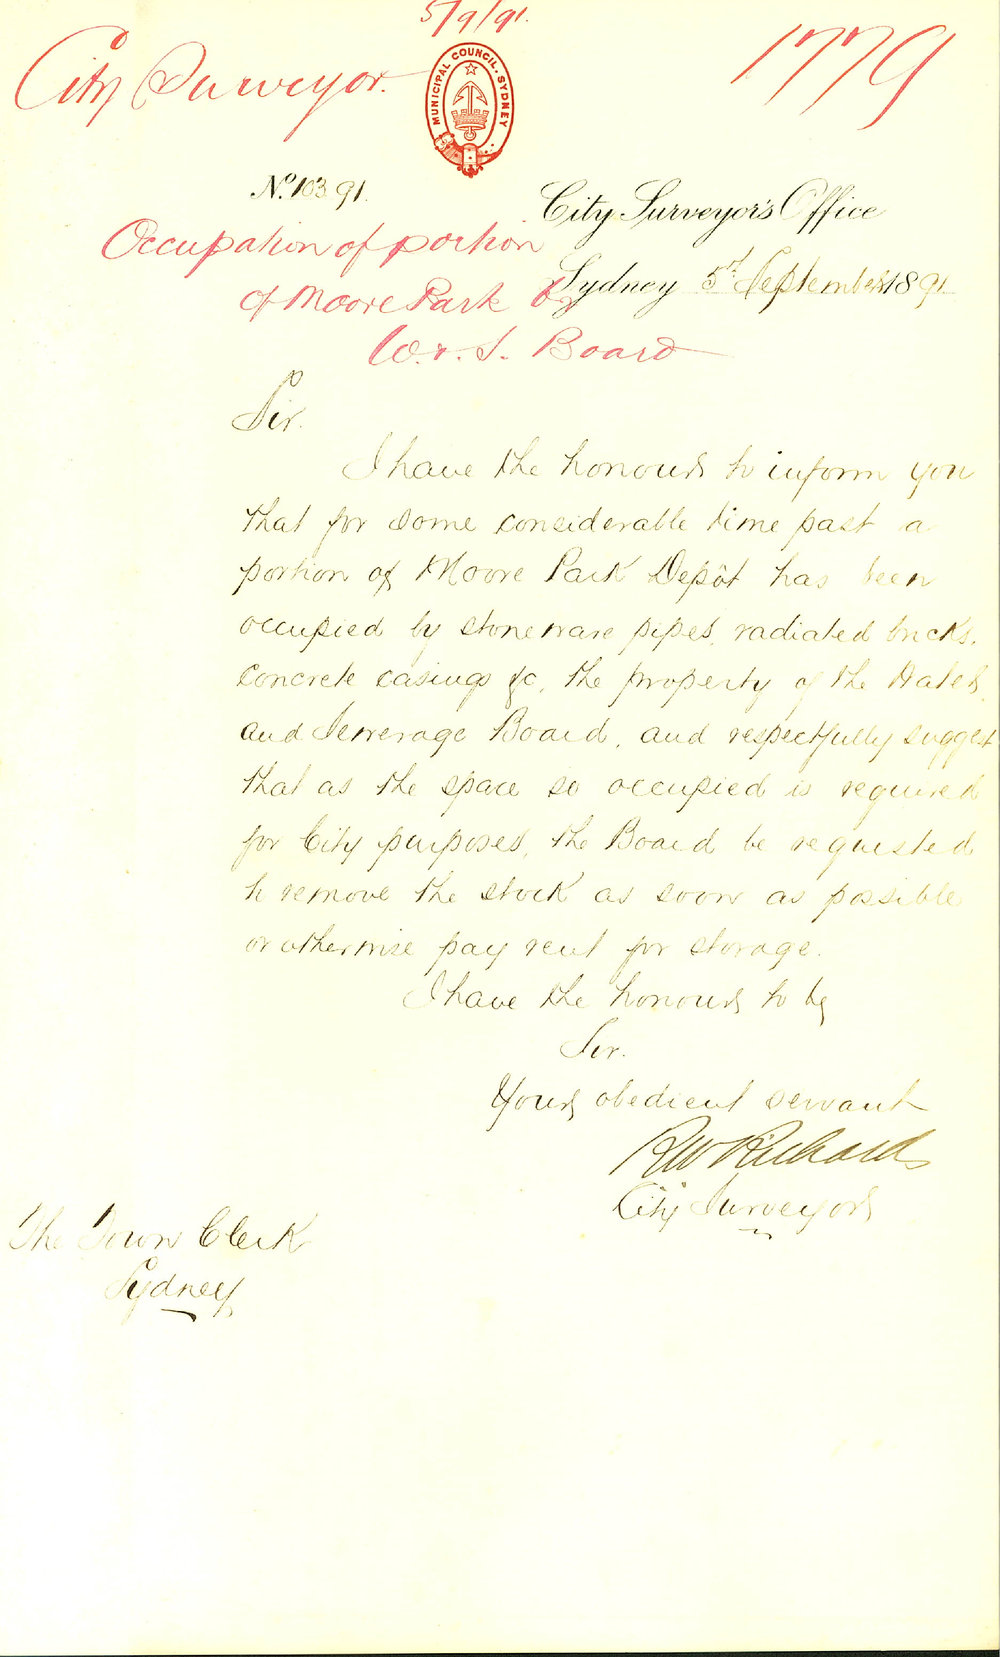 5/9/91.
City Surveyor.
1779
MUNICIPAL COUNCIL. SYDNEY
No. 103 91.
City Surveyor's Office
Occupation of portion
Sydney 5th September 1891
of Moore Park by
W. & S. Board
Sir.
I have the honour to inform you
that for some considerable time past a
portion of Moore Park Depôt has been
occupied by stoneware pipes, radiated bricks,
concrete casings &c, the property of the Water
and Sewerage Board, and respectfully suggest
that as the space so occupied is required
for City purposes, the Board be requested
to remove the stock as soon as possible
or otherwise pay rent for storage.
I have the honour to be
Sir.
Your obedient servant
RW Richards
City Surveyor
The Town Clerk
Sydney